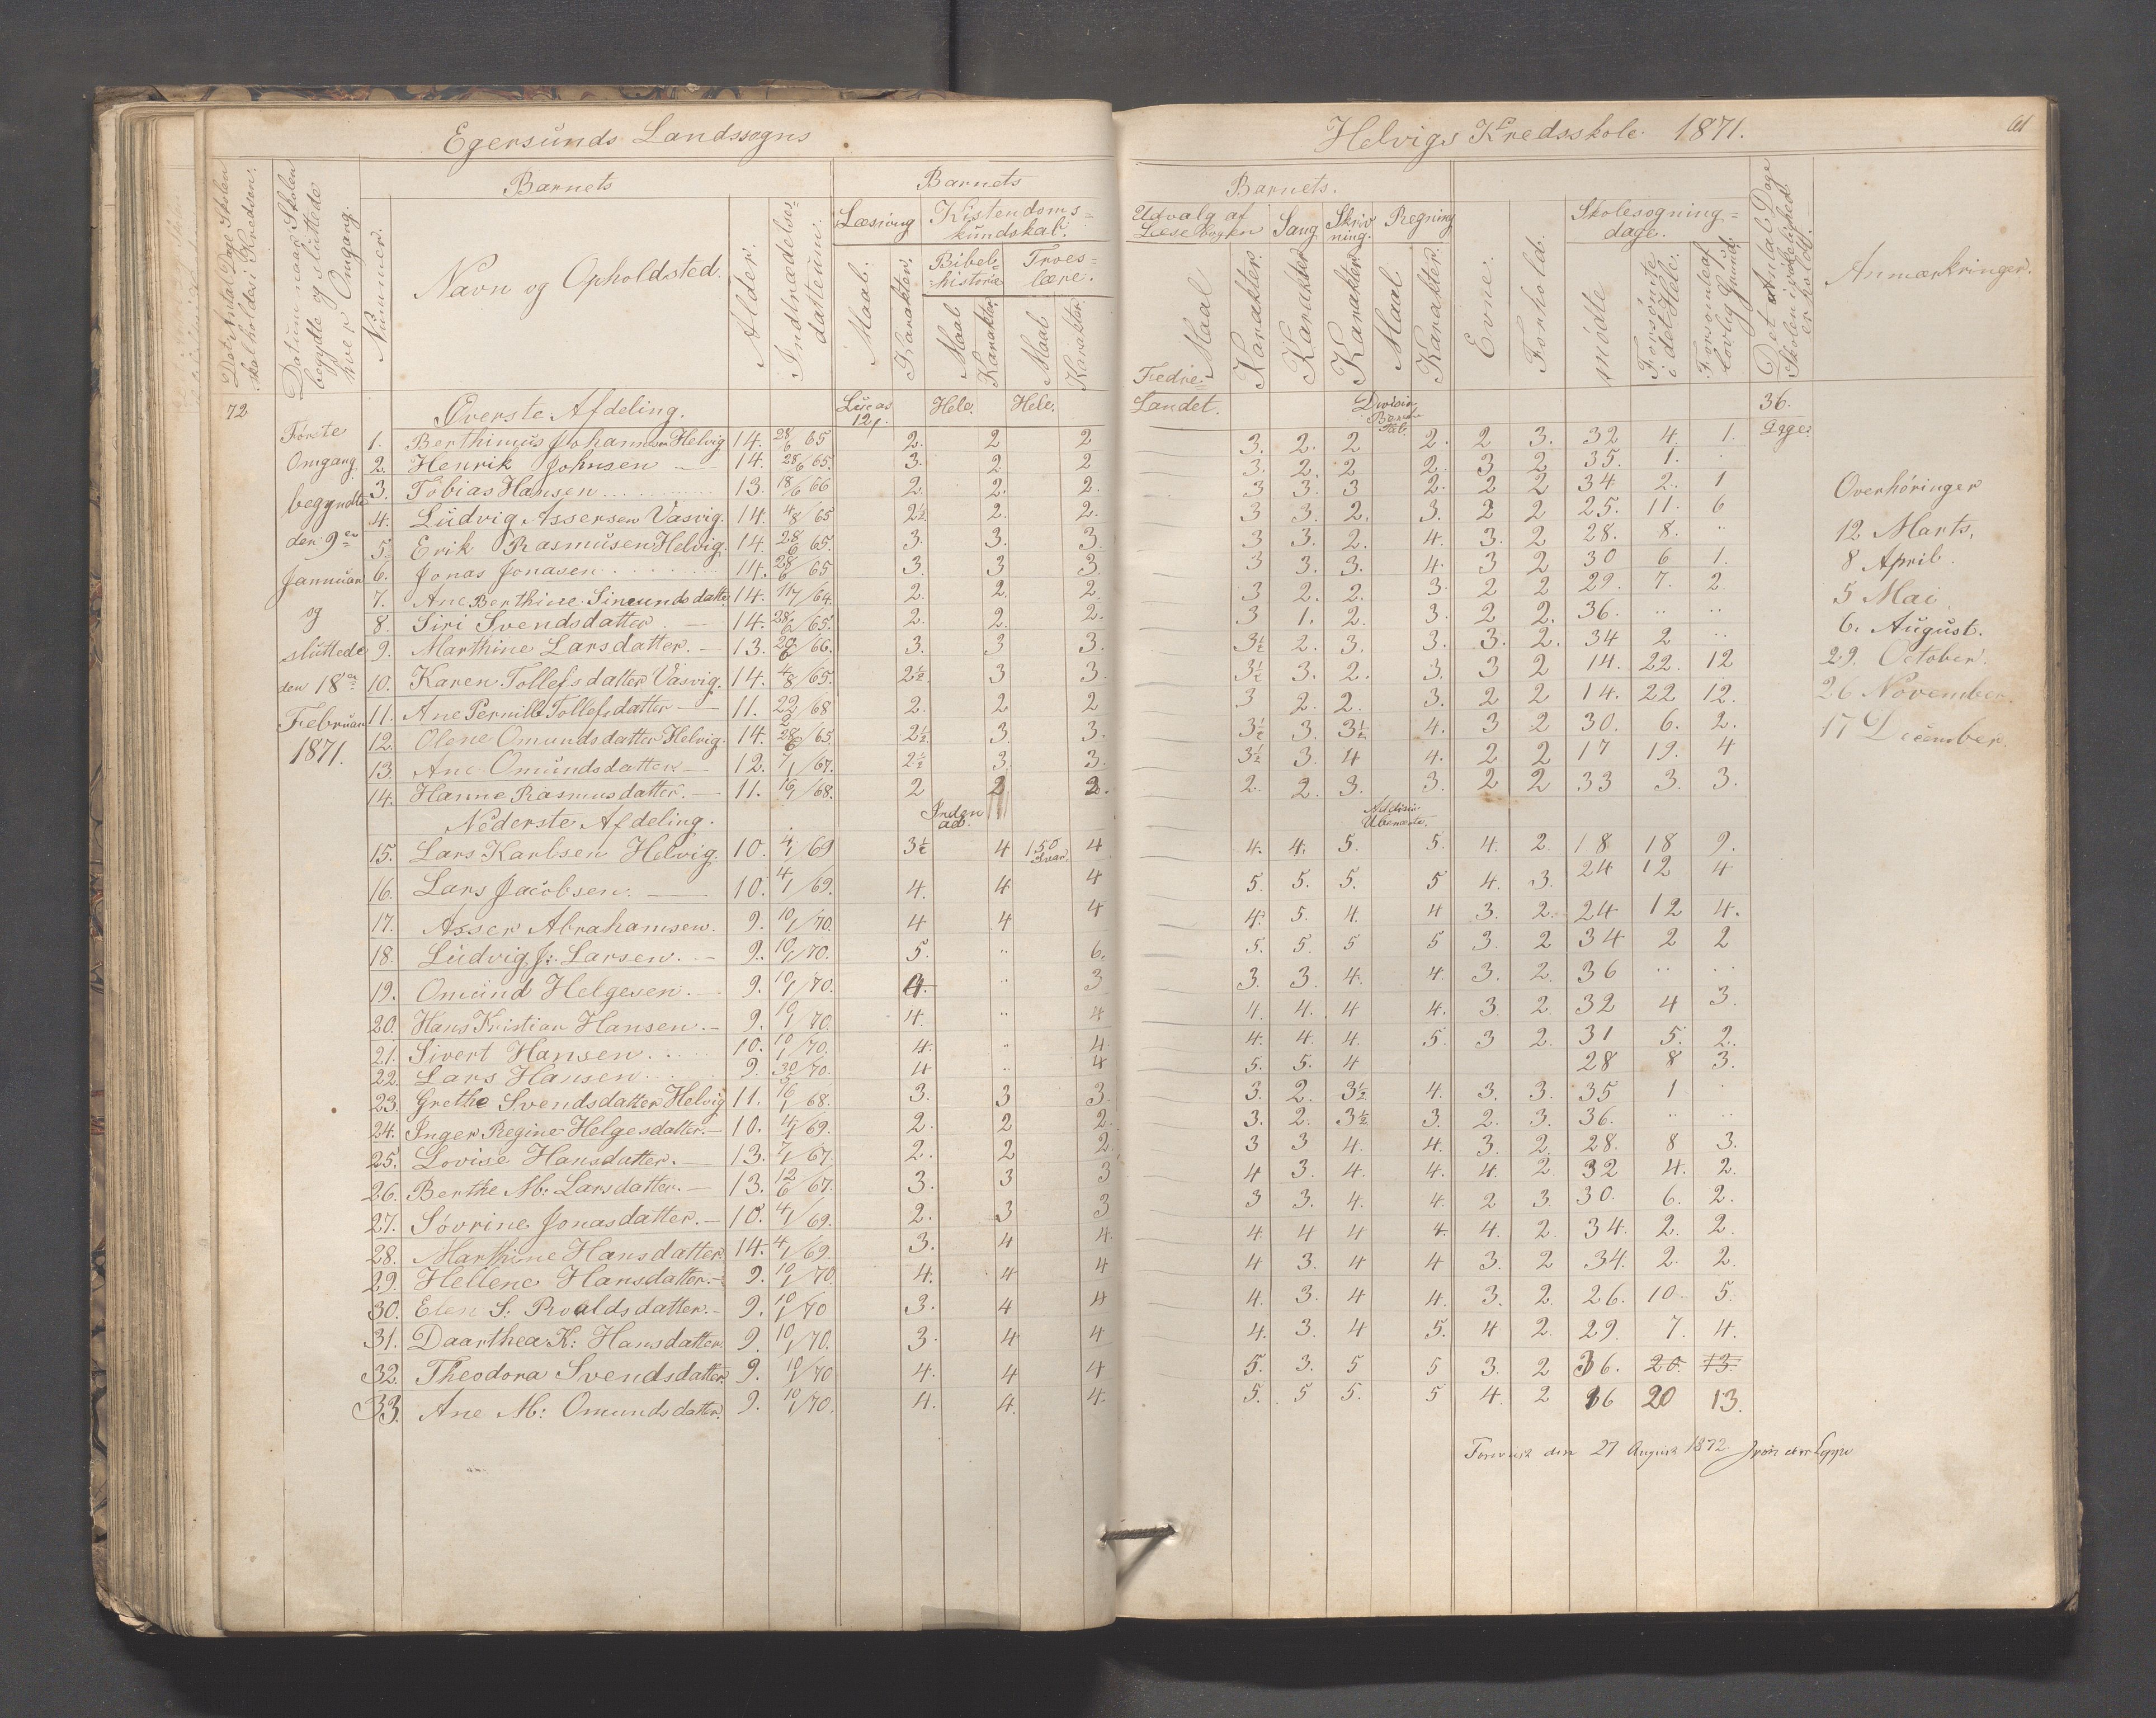 Egersunds Landssogns
Helvigs Kredsskole. 1871.
61
Det Antal Dage Skolen skal holdes i Kredsen.
Datum naar Skolen begyndte og sluttede hver Omgang.
Nummer.
Barnets
Navn og Opholdsted.
Alder.
Indtrædelses=dattum.
Barnets
Læsning
Maal.
Karakter.
Kristendoms=kundskab.
Bibel=historie
Maal
Karakter
Troes=lære.
Maal
Karakter.
Barnets.
Udvalg af Læsebogen
Maal
Karakter.
Sang
Karakter
Skrivning.
Karakter
Regning
Maal
Karakter.
Evne.
Forhold.
Skolesøgning=dage.
Mødte
Forsømte i det Hele.
Forsømt af lovlig Grund.
Det Antal Dage Skolen i virkeligheden er holdt.
Anmærkninger.
72
Første Omgang begyndte den 9en Januar og sluttede den 18en Februar 1871.
Øverste Afdeling. Lucas 12,. Hele. Hele. Fædre=Landet. Division 36. Dage.
1. Berthinus Johannsen Helvig. 14. 28/6 65 2. 2 2 3. 2. 2 2. 2 3. 32 4. 1.
2. Henrik Johnsen — 14. 28/6 65. 3. 2 2 3. 2. 2 2. 3 2 35. 1. .
3. Tobias Hansen 13. 18/6 66 2. 2. 2. 3 3. 3 2. 2 2 34 2. 1
4. Ludvig Assersen Vasvig. 14. 4/8 65 2½. 2. 2. 3 3. 2. 3. 2 2 25. 11. 6
5. Erik Rasmusen Helvig. 14. 28/6 65. 3. 3. 3. 3 3. 2. 4. 3. 2 28. 8. "
6. Jonas Jonasen 14. 28/6 65 3. 3 3. 3 3. 3. 4. 3 2 30 6 1.
7. Ane Berthine Simunds datter 14. 11/7 64. 2. 2. 2. 3 2. 2. 3. 2 2 29. 7. 2.
8. Siri Svendsdatter. — 14. 28/6 65. 2. 2. 2. 3 1. 2. 3. 2 2. 36. " "
9. Marthine Larsdatter. — 13. 29/6 66. 3. 3 3. 3½ 2. 3. 3. 3. 2. 34 2 "
10. Karen Tollefsdatter Vasvig. 14. 4/8 65. 2½. 3 3. 3½ 3. 2. 3. 3 2 14. 22. 12
11. Ane Pernille Tollefsdatter — 11. 22/2 68 2. 2 2 3 2. 2. 3. 2 2 14. 22 12.
12. Olene Omundsdatter Helvig. 14. 28/6 65. 2½. 3. 3. 3½ 3. 3½. 4. 3 2 30. 6. 2.
13. Ane Omundsdatter — 12. 7/1 67. 2½ 3. 3. 3½ 3. 4 4. 2 2 17 19. 4
14. Hanne Rasmusdatter. — 11. 16/1 68. 2 2 2. 2. 2. 3. 3. 2 2 33 3. 3.
Nederste Afdeling.
15. Lars Karlsen Helvig. 10. 4/1 69 3½ 4 150 Svar 4 4. 4. 5. 5. 4. 2. 18 18 9.
16. Lars Jacobsen. — 10. 4/1 69. 4. 4 4 5. 5. 5. 5 4. 3. 24 12 4
17. Asser Abrahamsen. 9. 10/1 70. 4 4 4 4. 5. 4. 4 3. 2. 24 12 4.
18. Ludvig J: Larsen. — 9. 10/1 70. 5. " 6. 5. 5. 5 5 3. 2 34 2 2
19. Omund Helgesen. — 9. 10/1 70. 4. " 3 3. 3. 4. 4. 3. 2. 36 " "
20. Hans Kristian Hansen. — 9. 10/1 70. 4. " 4 4. 4. 4 4. 3 2. 32 4 3.
21. Sivert Hansen. 10. 10/1 70. 4. " 4 4. 4. 4. 5. 3 2. 31 5. 2.
22. Lars Hansen. 9. 30/5 70. 4 " 4 5. 5. 4 28 8 3.
23. Grethe Svendsdatter Helvig 11. 16/1 68. 3. 3 3. 3. 2. 3½ 4. 3. 3. 35 1 .
24. Inger Regine Helgesdatter. — 10. 4/1 69. 2. 2 2. 3. 2. 3½. 3. 2. 3. 36. " "
25. Lovise Hansdatter. — 13. 7/1 67. 2. 2 2. 3 3 4. 4. 3. 2. 28. 8 3.
26. Berthe M: Larsdatter. — 13. 12/6 67. 3. 3 3 4 3. 4. 4. 4. 2. 32 4. 2.
27. Søvrine Jonasdatter. — 10. 4/1 69. 2. 3 3 3 3. 4. 4. 2 3. 30. 6. 2.
28. Marthine Hansdatter. 14. 4/1 69. 3. 4 4. 4. 4 4 4. 4. 2. 34. 2. 2.
29. Hellene Hansdatter. — 9. 10/1 70. 4. 4 4 4 3. 4 4 3. 2 34. 2. 2.
30. Elen S: Roaldsdatter. — 9. 10/1 70 3. 4 4 4. 3. 4 4. 3. 2. 26. 10. 5.
31. Daarthea K: Hansdatter. 9. 10/1 70. 3. 4 4 4. 3. 4 5. 4 2. 29. 7. 4.
32. Theodora Svendsdatter. 9. 10/1 70 4. 4 4 5. 3. 5 5 3. 2 36. 20. 13.
33. Ane M: Omundsdatter. 9. 10/1 70. 4. 4. 4. 5. 5 5. 5 4. 2 16 20 13.
Overhøringer
12 Marts,
8 April.
5 Mai
6. August.
29. October.
26 November.
17 December.
Forevist den 27 August 1872.